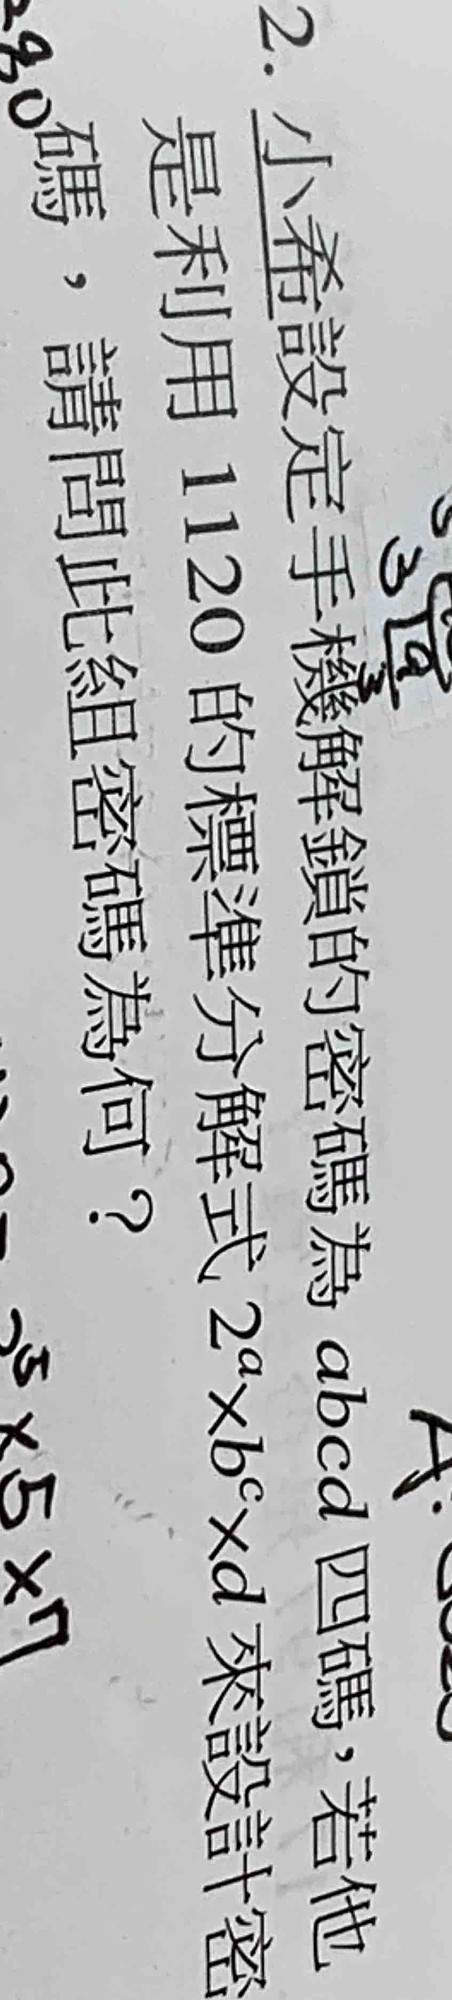 2. 小希設定手機解鎖的密碼為 abcd 四碼，若他
是利用 1120 的標準分解式 2ᵃ×bᶜ×d 來設計密
碼，請問此組密碼為何？
×5×7